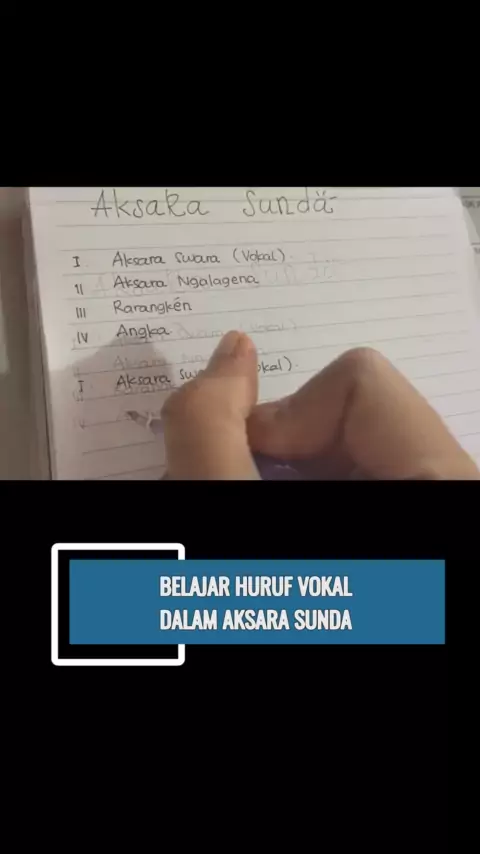 Aksara Sunda
I Aksara Swara (Vokal).
II Aksara Ngalagena
III Rarangkén
IV Angka
I Aksara
BELAJAR HURUF VOKAL
DALAM AKSARA SUNDA